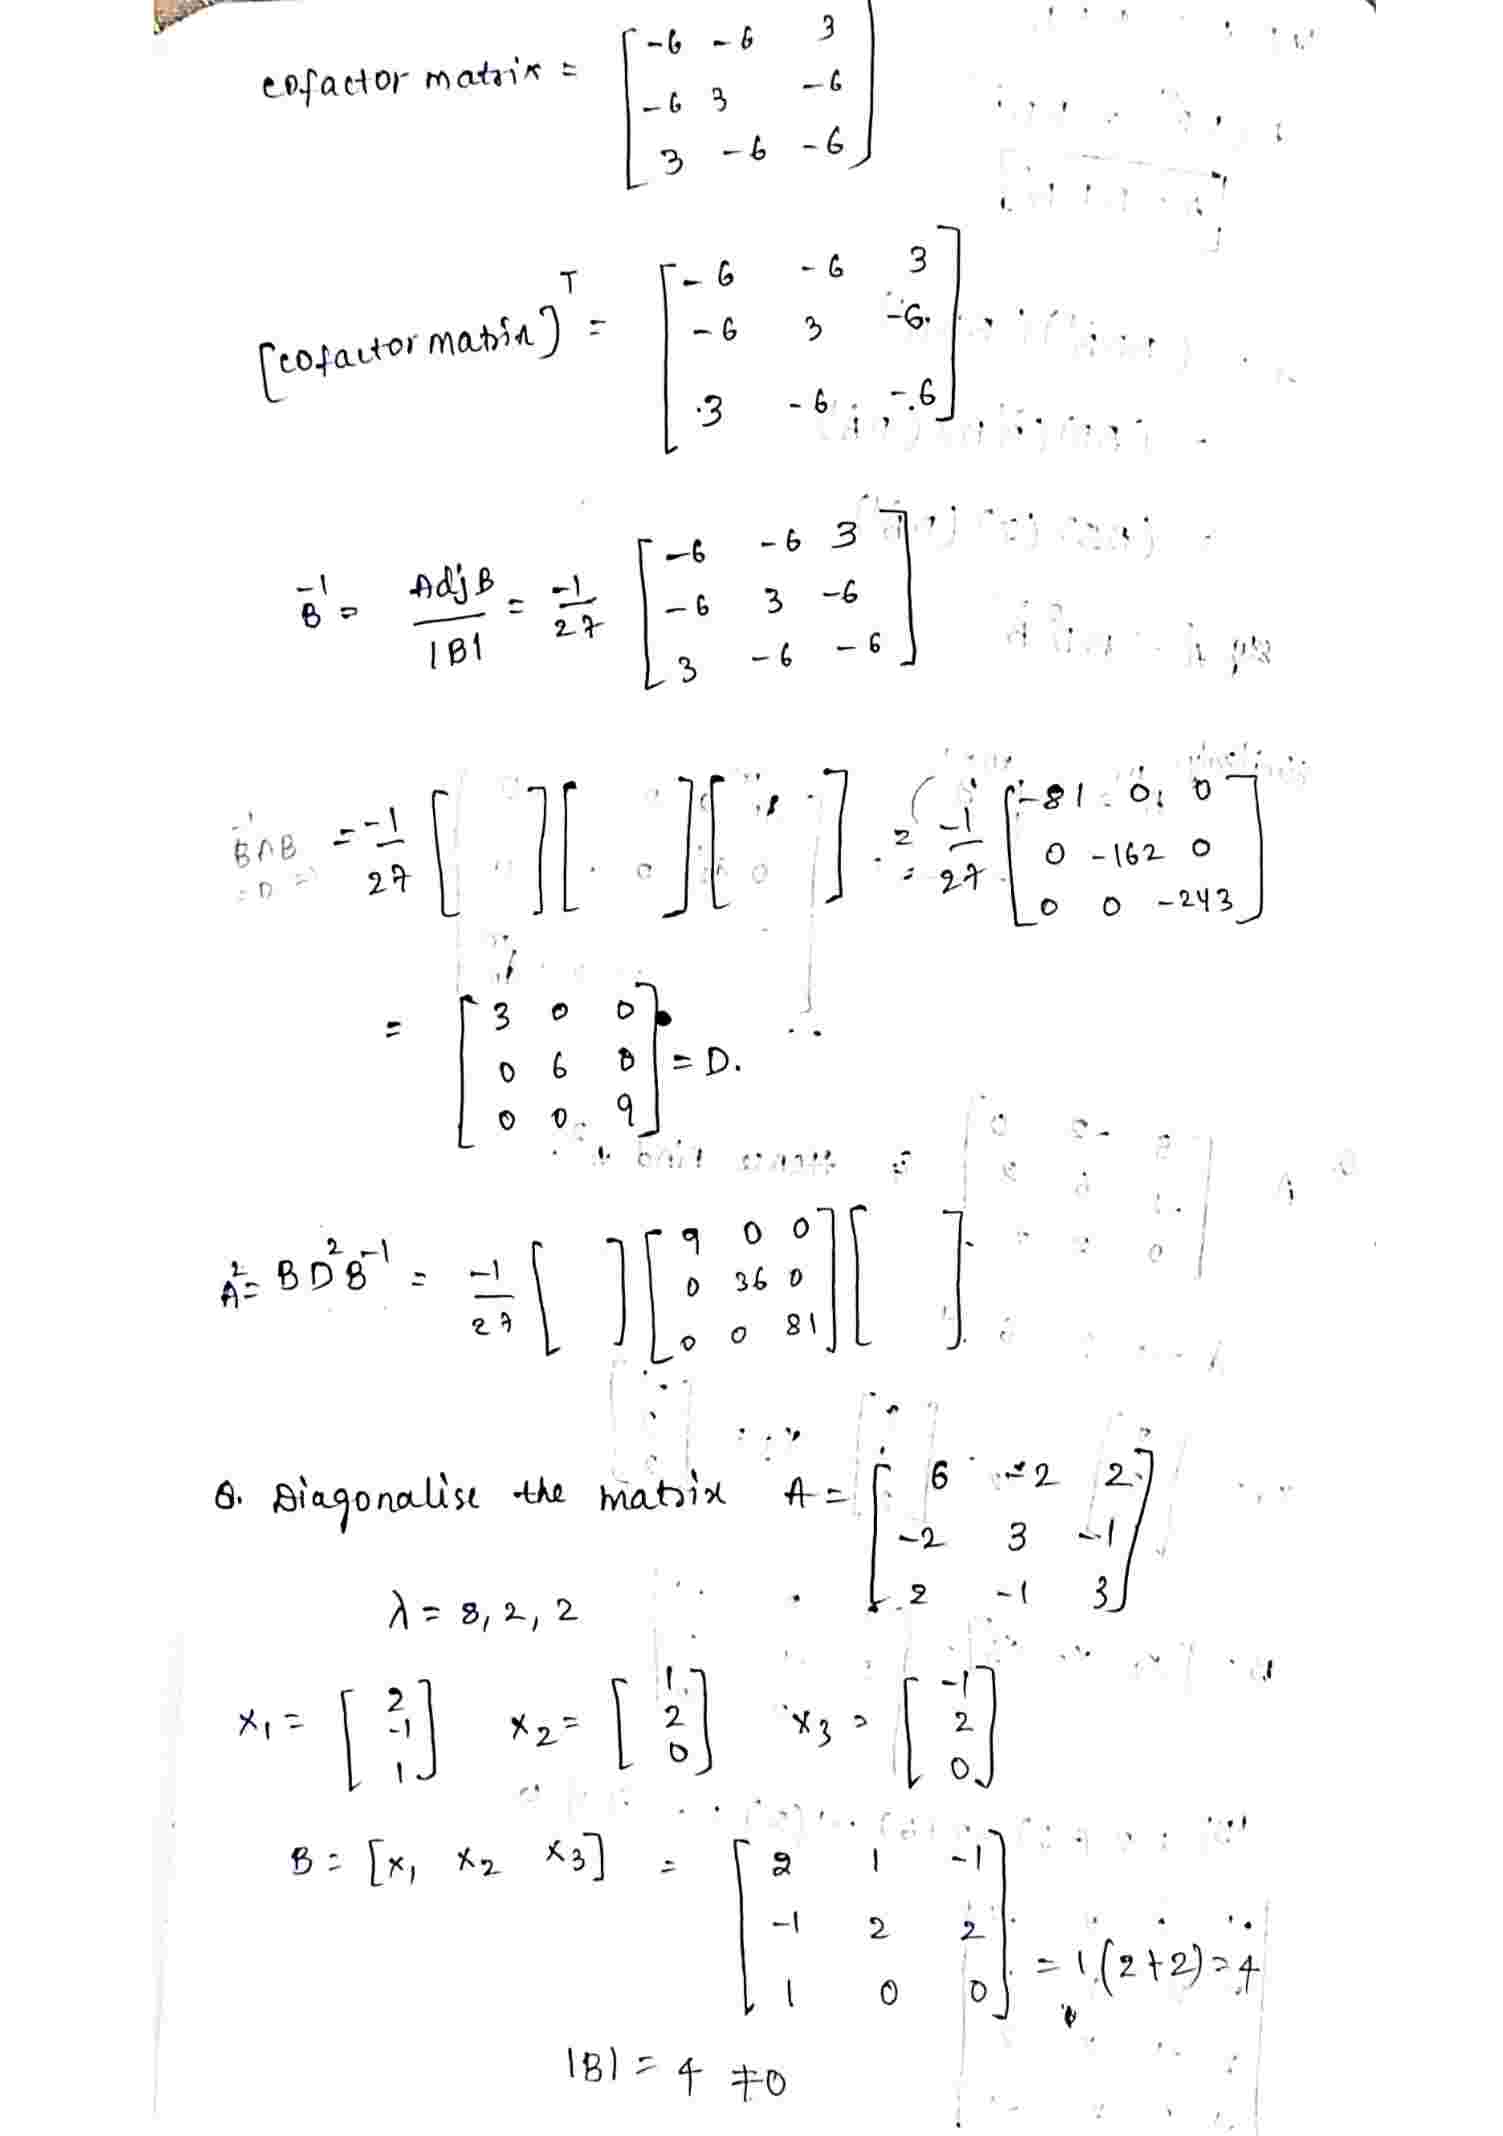 cofactor matrix = [ -6 -6 3
-6 3 -6
3 -6 -6 ]
[cofactor matrix]ᵀ = [ -6 -6 3
-6 3 -6
3 -6 -6 ]
B⁻¹ = Adj B / |B| = -1/27 [ -6 -6 3
-6 3 -6
3 -6 -6 ]
B⁻¹AB = -1/27 [ ] [ ] [ ] = -1/27 [ -81 0 0
= D
0 -162 0
0 0 -243 ]
= [ 3 0 0
0 6 0
0 0 9 ] = D.
A² = BD²B⁻¹ = -1/27 [ ] [ 9 0 0
0 36 0
0 0 81 ] [ ]
Q. Diagonalise the matrix A = [ 6 -2 2
-2 3 -1
2 -1 3 ]
λ = 8, 2, 2
x₁ = [ 2 -1 1 ] x₂ = [ 1 2 0 ] x₃ = [ -1 2 0 ]
B = [x₁ x₂ x₃] = [ 2 1 -1
-1 2 2
1 0 0 ] = 1(2+2) = 4
|B| = 4 ≠ 0